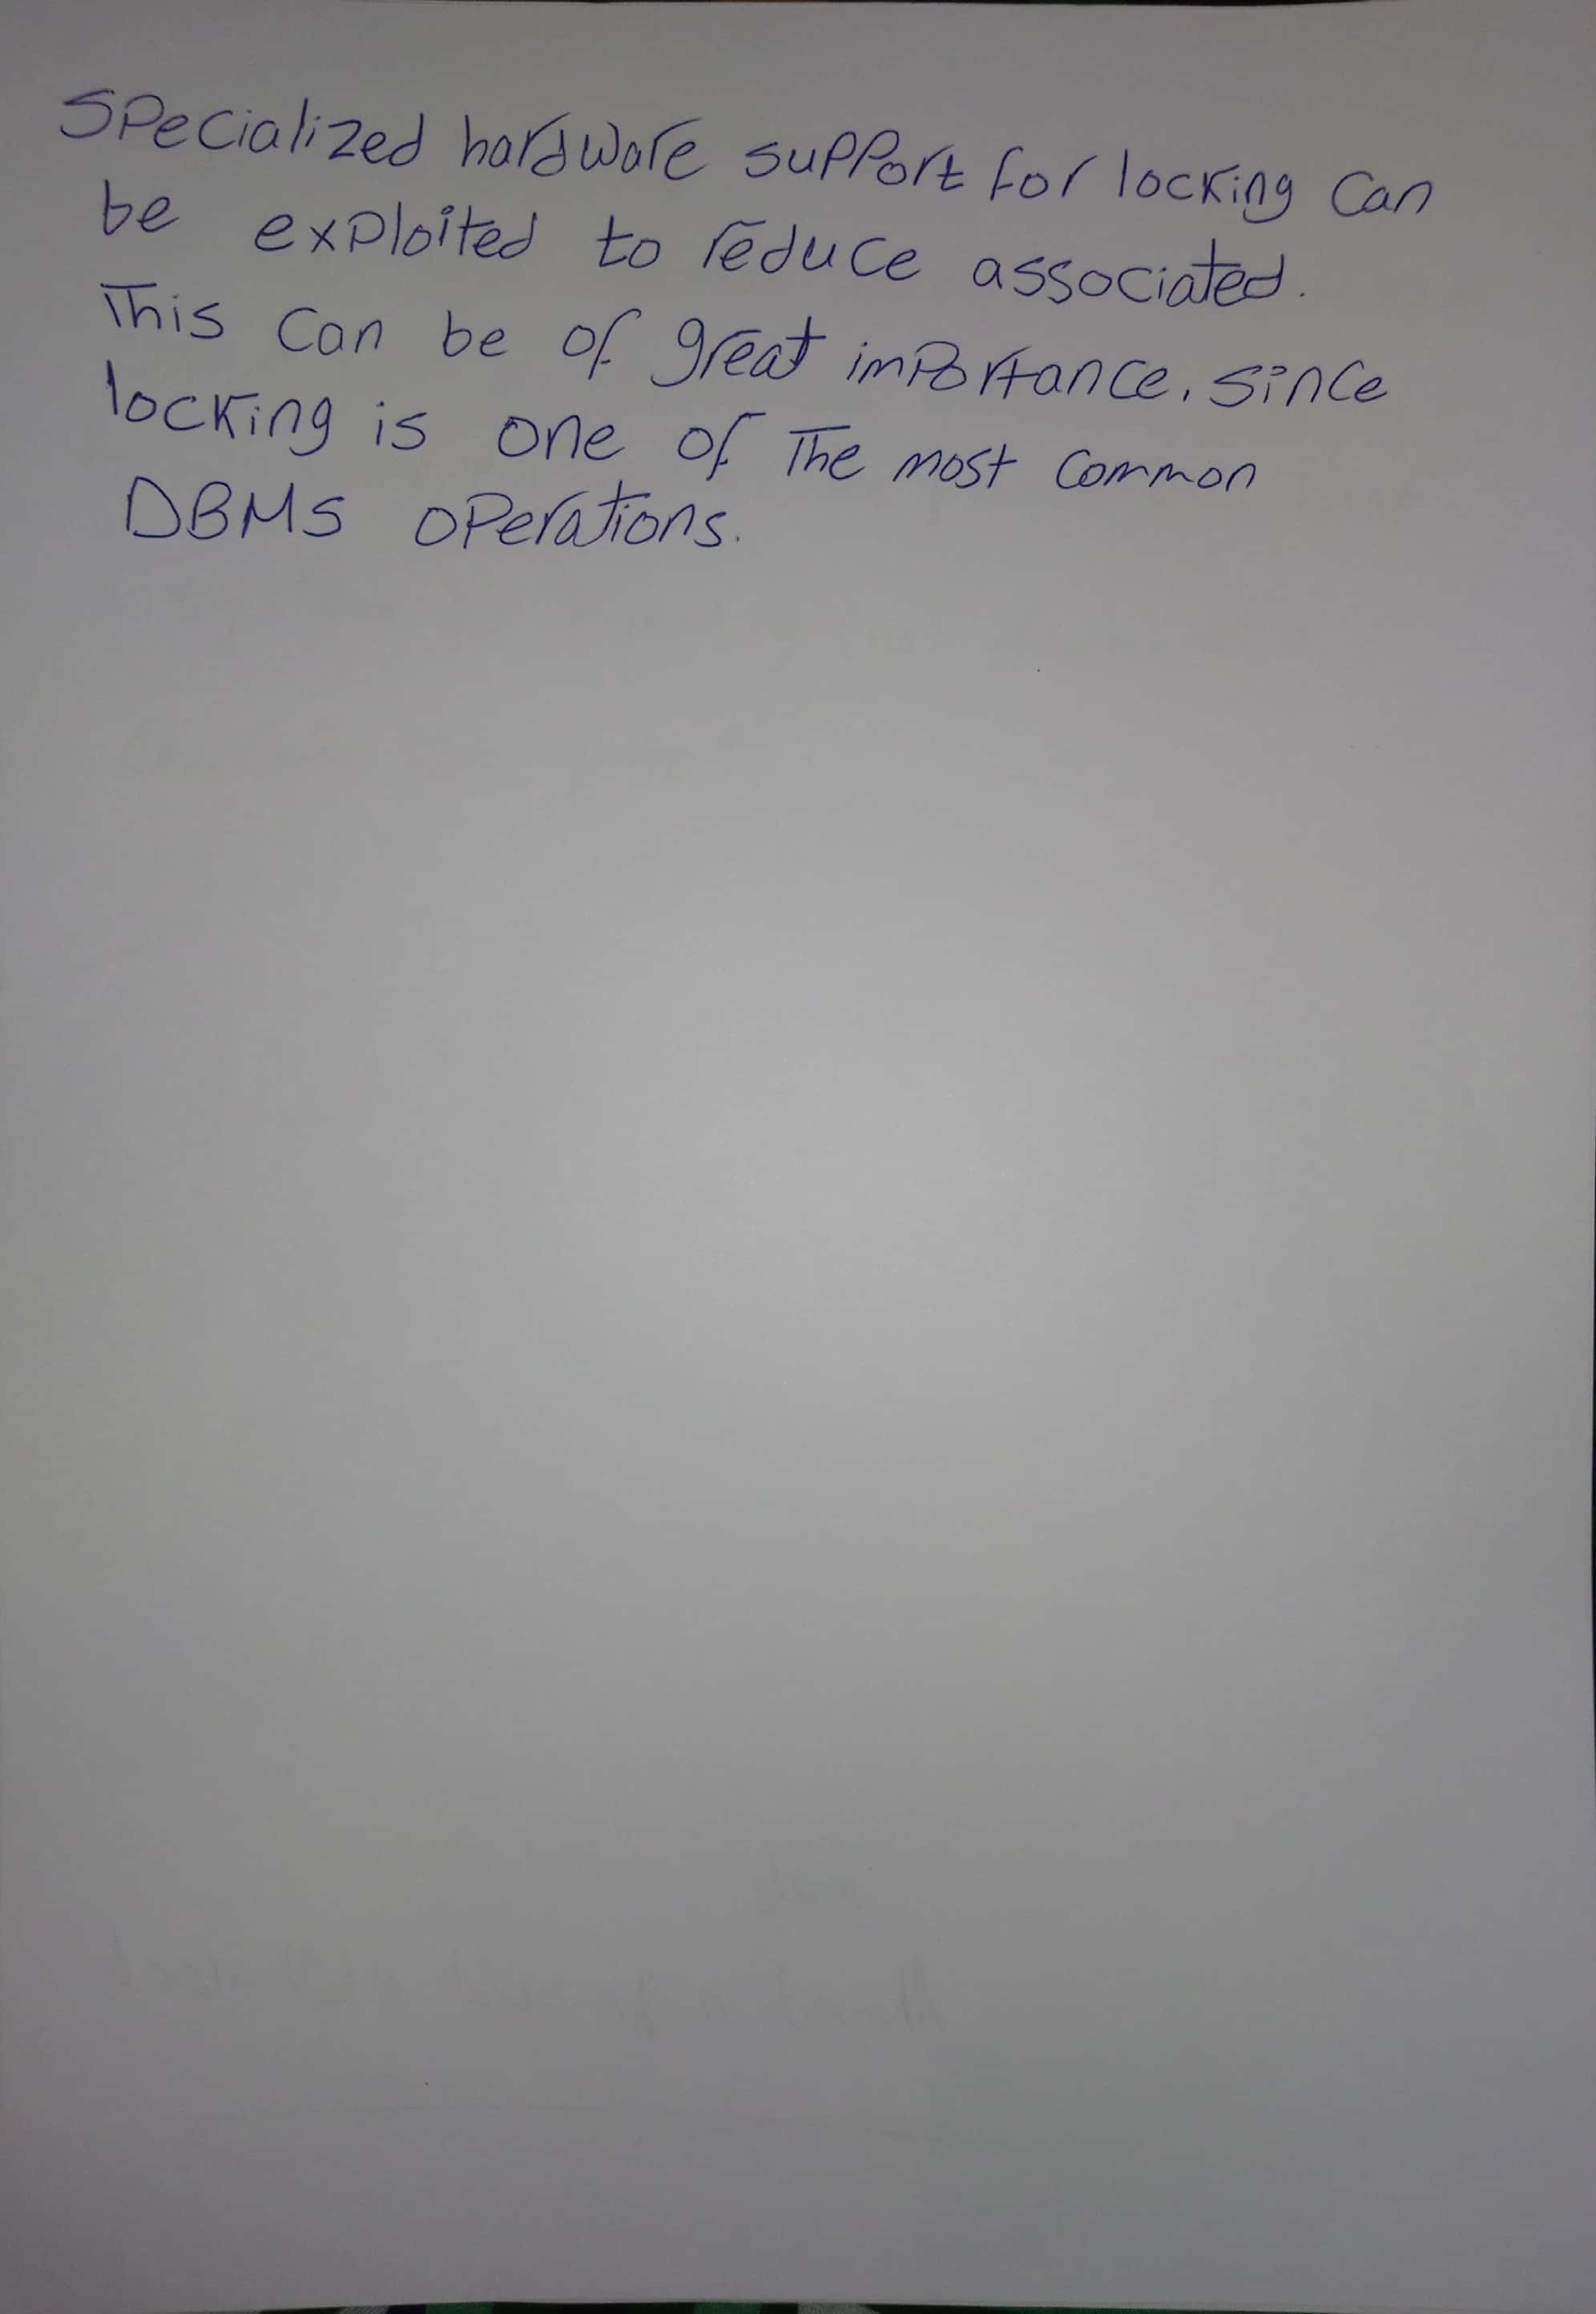 Specialized hardware support for locking can
be exploited to reduce associated.
This can be of great importance, since
locking is one of the most common
DBMS operations.